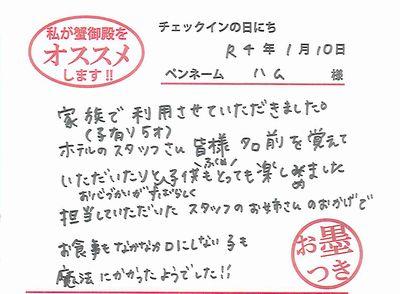 私が蟹御殿を
オススメ
します!!
チェックインの日にち
R4年1月10日
ペンネーム ハム 様
家族で利用させていただきました。
(子有り5才)
ホテルのスタッフさん皆様名前を覚えて
いただいたりと子供もとっても楽しめました
ふくめ!
お心づかいがすばらしく
担当していただいたスタッフのお姉さんのおかげで
お食事もなかなか口にしない子も
魔法にかかったようでした!!
お墨
つき